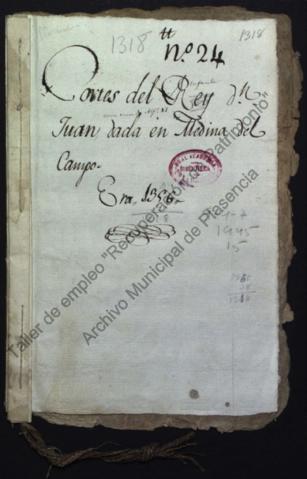 1318
1318
tt
nº 24
Cortes del Rey dn
Juan dada en Medina del
Campo.
Era 1356.
REAL ACADEMIA
BIBLIOTECA
1995
15
Taller de empleo "Recuperación de Patrimonio"
Archivo Municipal de Plasencia